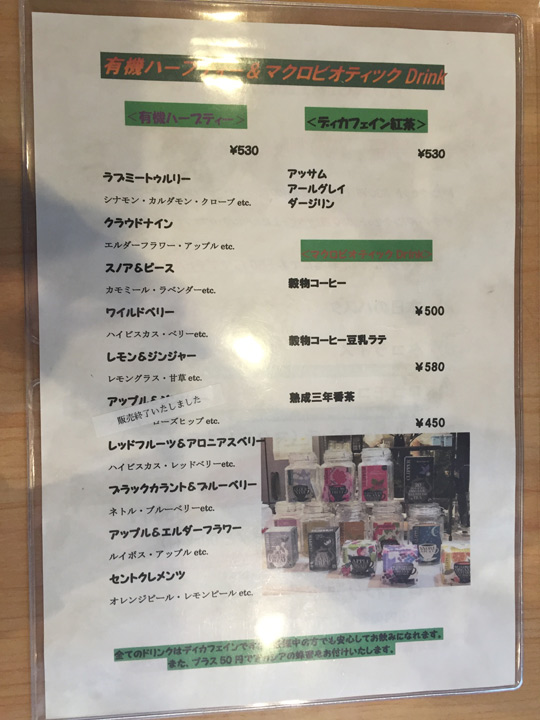 有機ハーブティー & マクロビオティック Drink
＜有機ハーブティー＞
¥530
ラブミートゥルリー
シナモン・カルダモン・クローブ etc.
クラウドナイン
エルダーフラワー・アップル etc.
スノア&ピース
カモミール・ラベンダーetc.
ワイルドベリー
ハイビスカス・ベリーetc.
レモン&ジンジャー
レモングラス・甘草 etc.
アップル&
販売終了いたしました
ローズヒップ etc.
レッドフルーツ&アロニアスベリー
ハイビスカス・レッドベリーetc.
ブラックカラント&ブルーベリー
ネトル・ブルーベリーetc.
アップル&エルダーフラワー
ルイボス・アップル etc.
セントクレメンツ
オレンジピール・レモンピール etc.
＜ディカフェイン紅茶＞
¥530
アッサム
アールグレイ
ダージリン
＜マクロビオティック Drink＞
穀物コーヒー
¥500
穀物コーヒー豆乳ラテ
¥580
熟成三年番茶
¥450
全てのドリンクはディカフェインです。中の方でも安心してお飲みになれます。
また、プラス50円でアカシアの蜂蜜をお付けいたします。